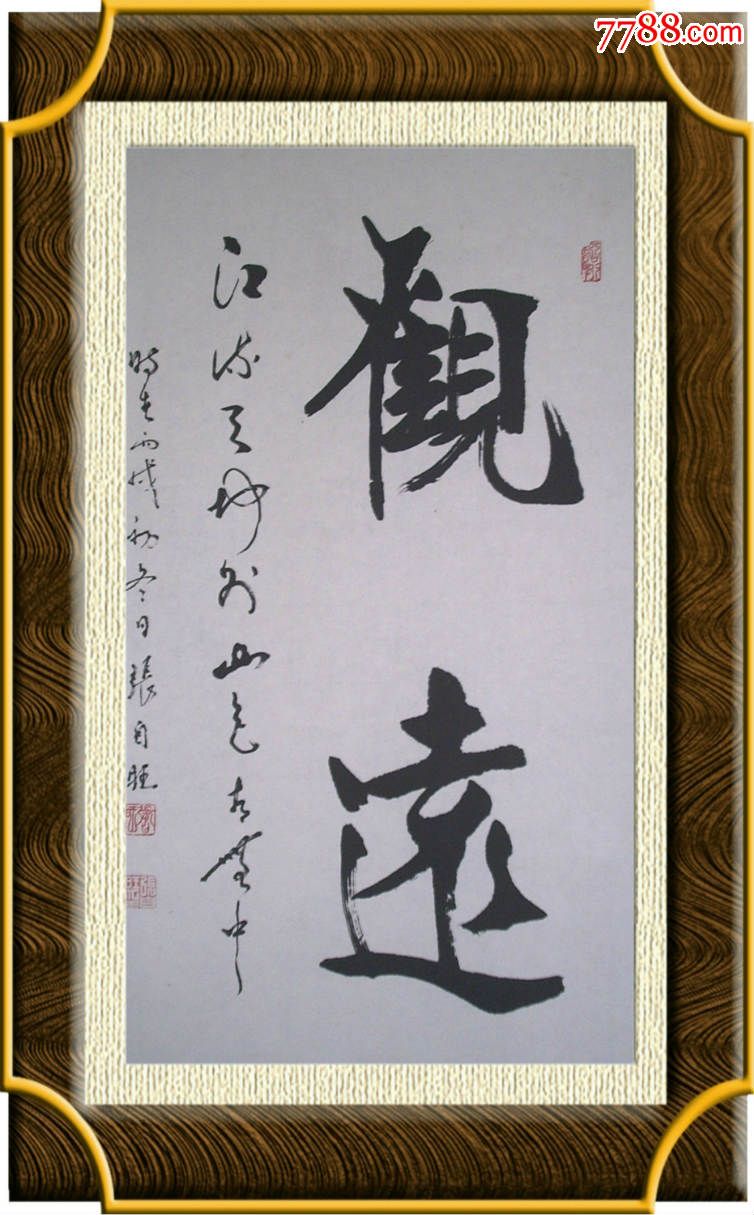 7788.com
觀遠
江流天地外山色有無中
時在丙戌初冬日張自旺